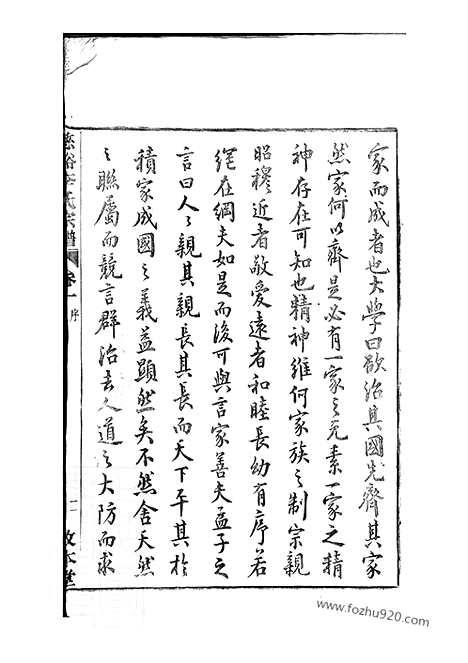 家而成者也大學曰欲治其國先齊其家
然家何以齊是必有一家之元素一家之精
神存在可知也精神維何家族之制宗親
昭穆近者敬愛遠者和睦長幼有序若
綱夫如是而後可與言家善夫孟子之
言曰人人親其親長其長而天下平其於
積家成國之義益顯然矣不然舍天然
之聯屬而競言群治去人道之大防而求
李氏宗譜
卷一
序
二
敦本堂
www.fozhu920.com